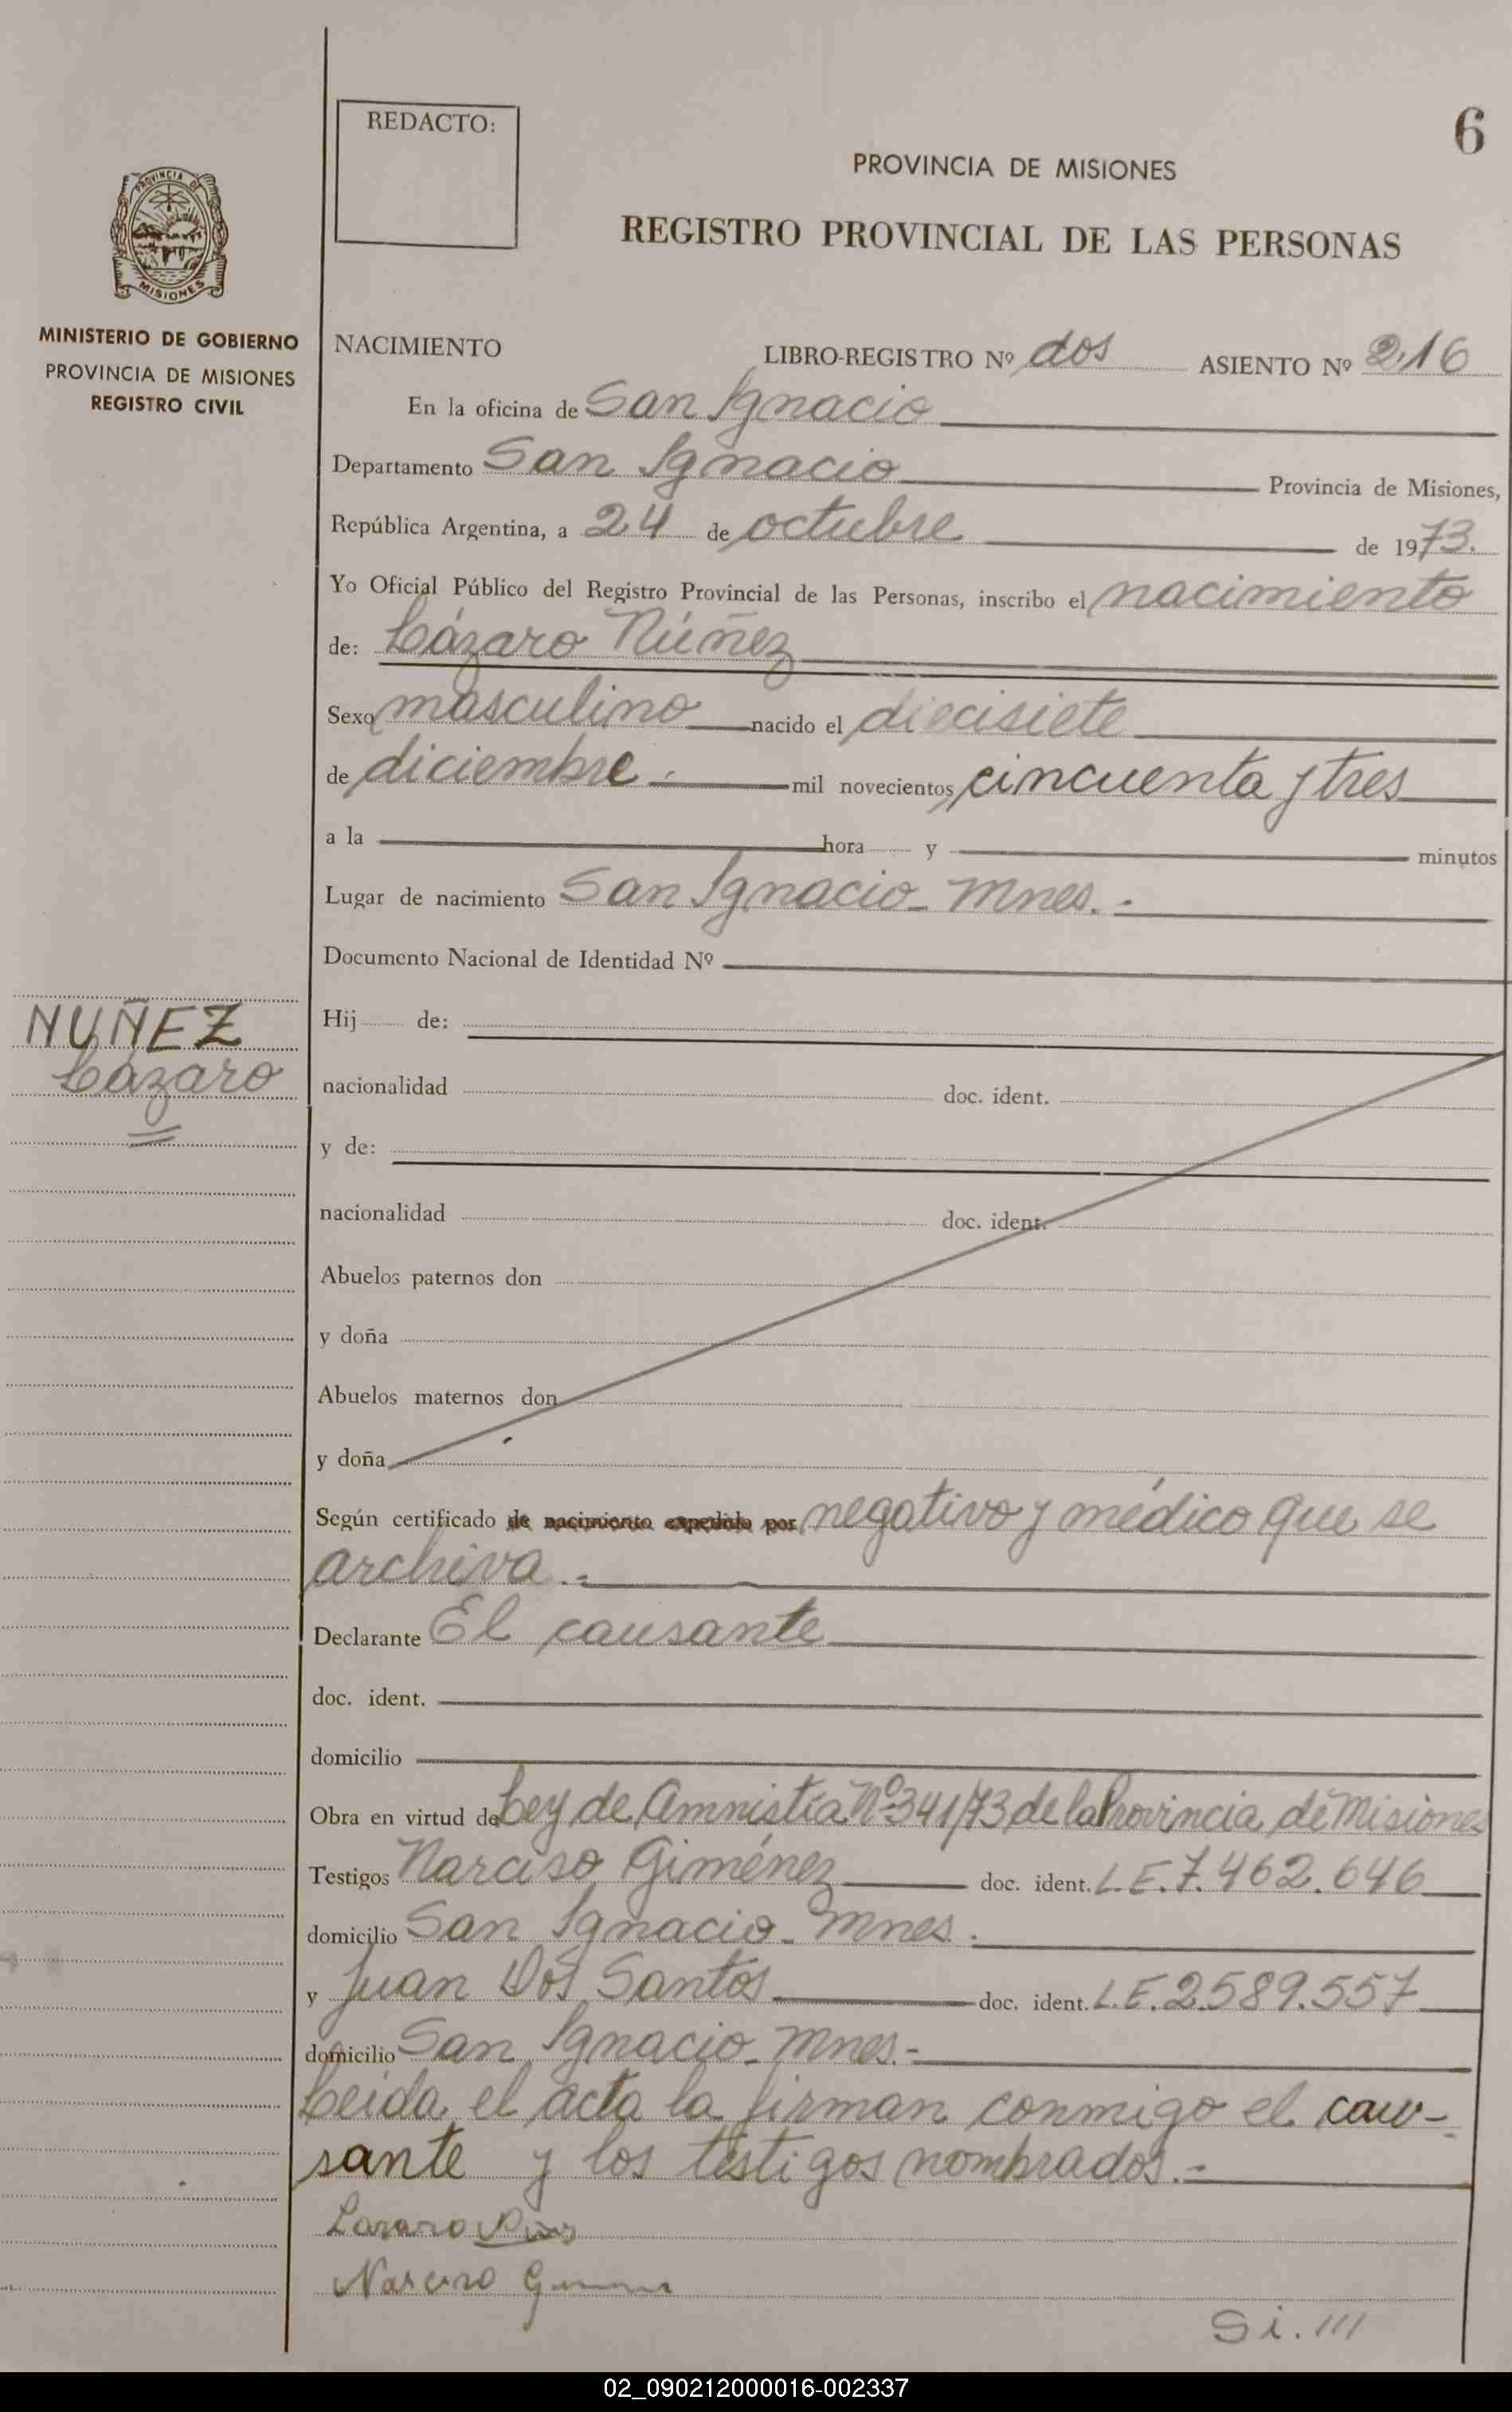 6
REDACTO:
PROVINCIA DE MISIONES
REGISTRO PROVINCIAL DE LAS PERSONAS
PROVINCIA DE
MISIONES
MINISTERIO DE GOBIERNO
PROVINCIA DE MISIONES
REGISTRO CIVIL
NACIMIENTO LIBRO-REGISTRO Nº dos ASIENTO Nº 216
En la oficina de San Ignacio
Departamento San Ignacio Provincia de Misiones,
República Argentina, a 24 de octubre de 1973.
Yo Oficial Público del Registro Provincial de las Personas, inscribo el nacimiento
de: Lázaro Núñez
Sexo masculino nacido el diecisiete
de diciembre.- mil novecientos cincuenta y tres
a la hora y minutos
Lugar de nacimiento San Ignacio - Mnes. -
Documento Nacional de Identidad Nº
NUÑEZ
Lázaro
Hij de:
nacionalidad doc. ident.
y de:
nacionalidad doc. ident.
Abuelos paternos don
y doña
Abuelos maternos don
y doña
Según certificado de nacimiento expedido por negativo y médico que se
archiva.-
Declarante El causante
doc. ident.
domicilio
Obra en virtud de Ley de Amnistía Nº 341/73 de la Provincia de Misiones
Testigos Narciso Giménez doc. ident. L.E. 7.462.646
domicilio San Ignacio - Mnes.
y Juan Dos Santos doc. ident. L.E. 2.589.557
domicilio San Ignacio - Mnes.-
Leída el acta la firman conmigo el cau-
sante y los testigos nombrados.-
Lazaro
Narciso
Si. III
02_090212000016-002337